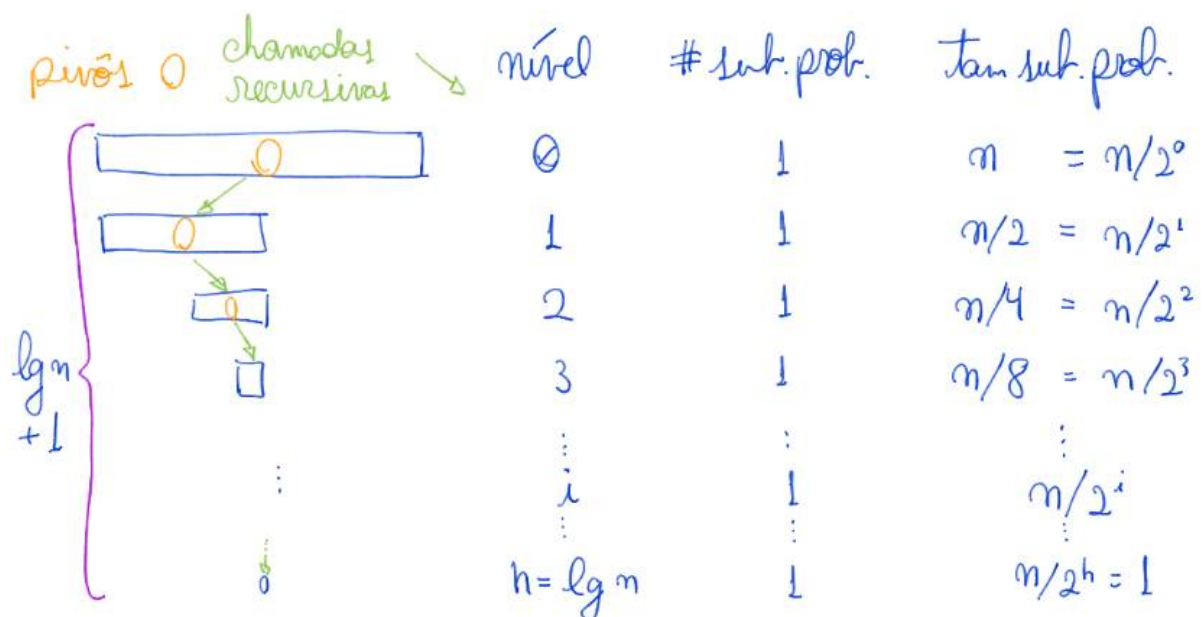 pivôs O chamadas recursivas nível # sub. prob. tam sub. prob.
0 1 n = n/2⁰
1 1 n/2 = n/2¹
2 1 n/4 = n/2²
lg n + 1
3 1 n/8 = n/2³
⋮ ⋮ ⋮ ⋮
i 1 n/2ⁱ
⋮ ⋮ ⋮
h = lg n 1 n/2ʰ = 1